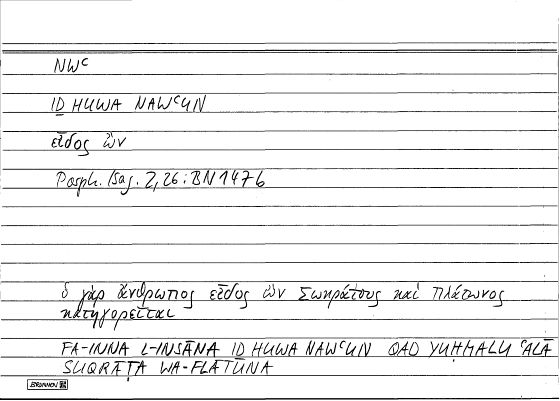 NWʿ
ID HUWA NAWʿUN
εἶδος ὢν
Porph. Isag. 2,26 : BN 147b
ὁ γὰρ ἄνθρωπος εἶδος ὢν Σωκράτους καὶ Πλάτωνος
κατηγορεῖται
FA-INNA L-INSĀNA IḎ HUWA NAWʿUN QAD YUḤMALU ʿALĀ
SUQRĀṬA WA-FLĀṬUNA
BRUNNEN